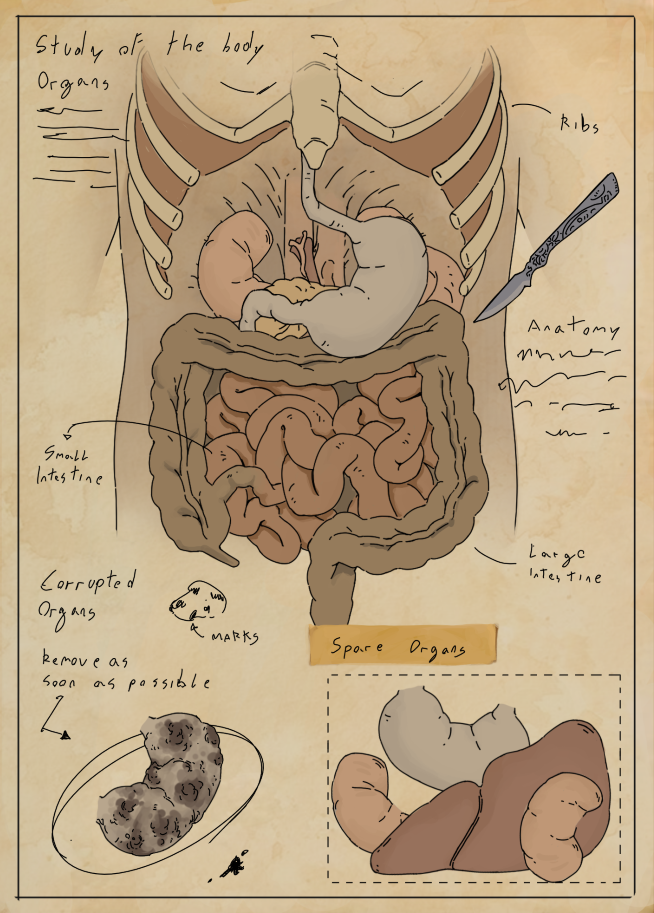 Study of the body
Organs
Ribs
Anatomy
Small
Intestine
Large
Intestine
Corrupted
Organs
MARKS
Remove as
soon as possible
Spare Organs